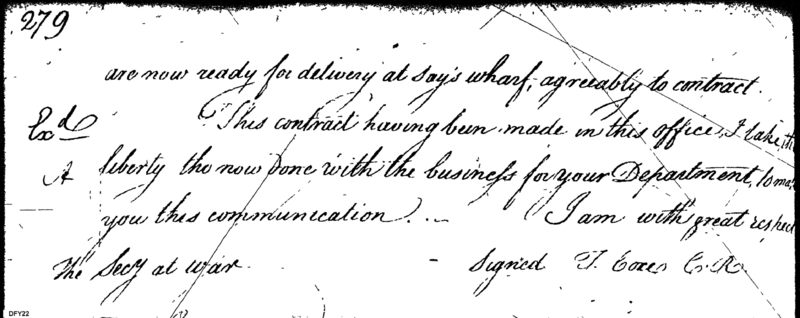 279
are now ready for delivery at Say's wharf, agreeably to contract.
Exd This contract having been made in this office, I take the
A liberty tho now done with the business for your Department, to ma
you this communication. I am with great respect
The Secy at war. Signed T. Coxe C.R.
DFY22